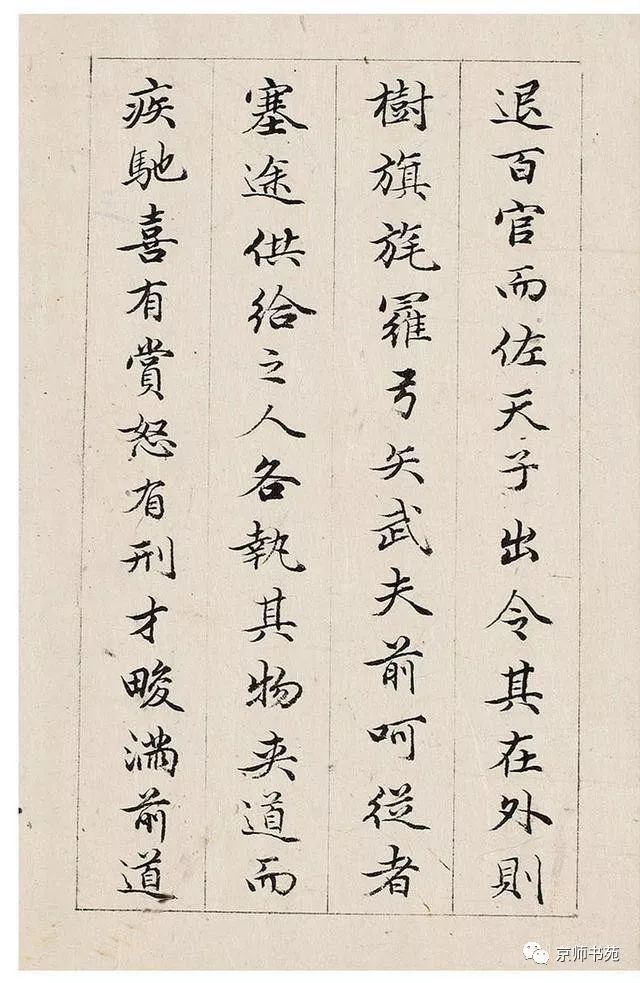 退百官而佐天子出令其在外則
樹旗旄羅弓矢武夫前呵從者
塞途供給之人各執其物夾道而
疾馳喜有賞怒有刑才畯滿前道
京师书苑